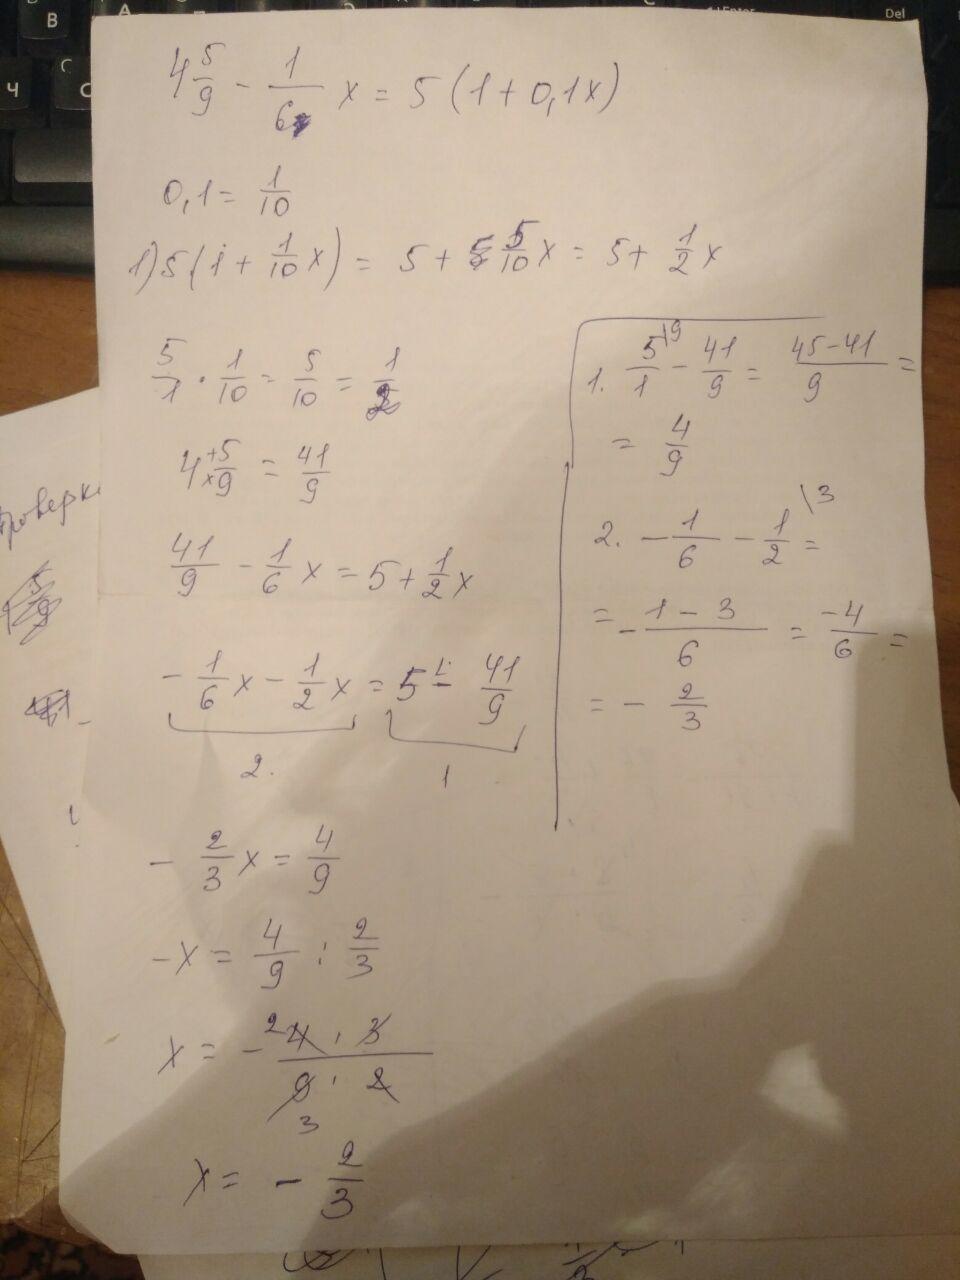 4 5/9 - 1/6 x = 5 (1 + 0,1x)
0,1 = 1/10
1) 5(1 + 1/10 x) = 5 + 5/10 x = 5 + 1/2 x
5/1 · 1/10 = 5/10 = 1/2
4 +5/×9 = 41/9
41/9 - 1/6 x = 5 + 1/2 x
- 1/6 x - 1/2 x = 5 - 41/9
2. 1
- 2/3 x = 4/9
-x = 4/9 : 2/3
x = - 4 · 3 / 9 · 2
2
3
x = - 2/3
1. 5/1 \9 - 41/9 = 45-41/9 =
= 4/9
2. - 1/6 - 1/2 \3 =
= - 1 - 3/6 = -4/6 =
= - 2/3
Del